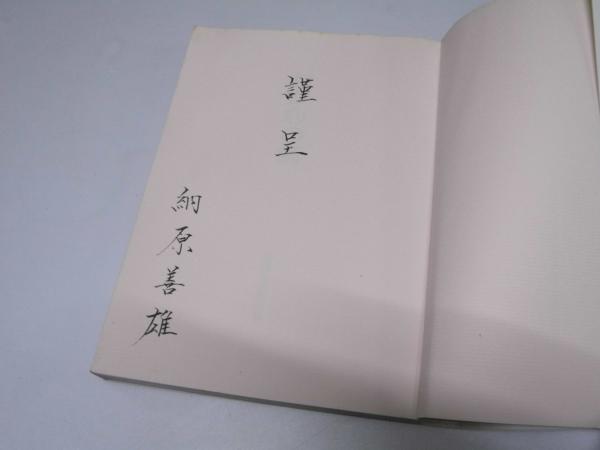 謹呈
納原善雄